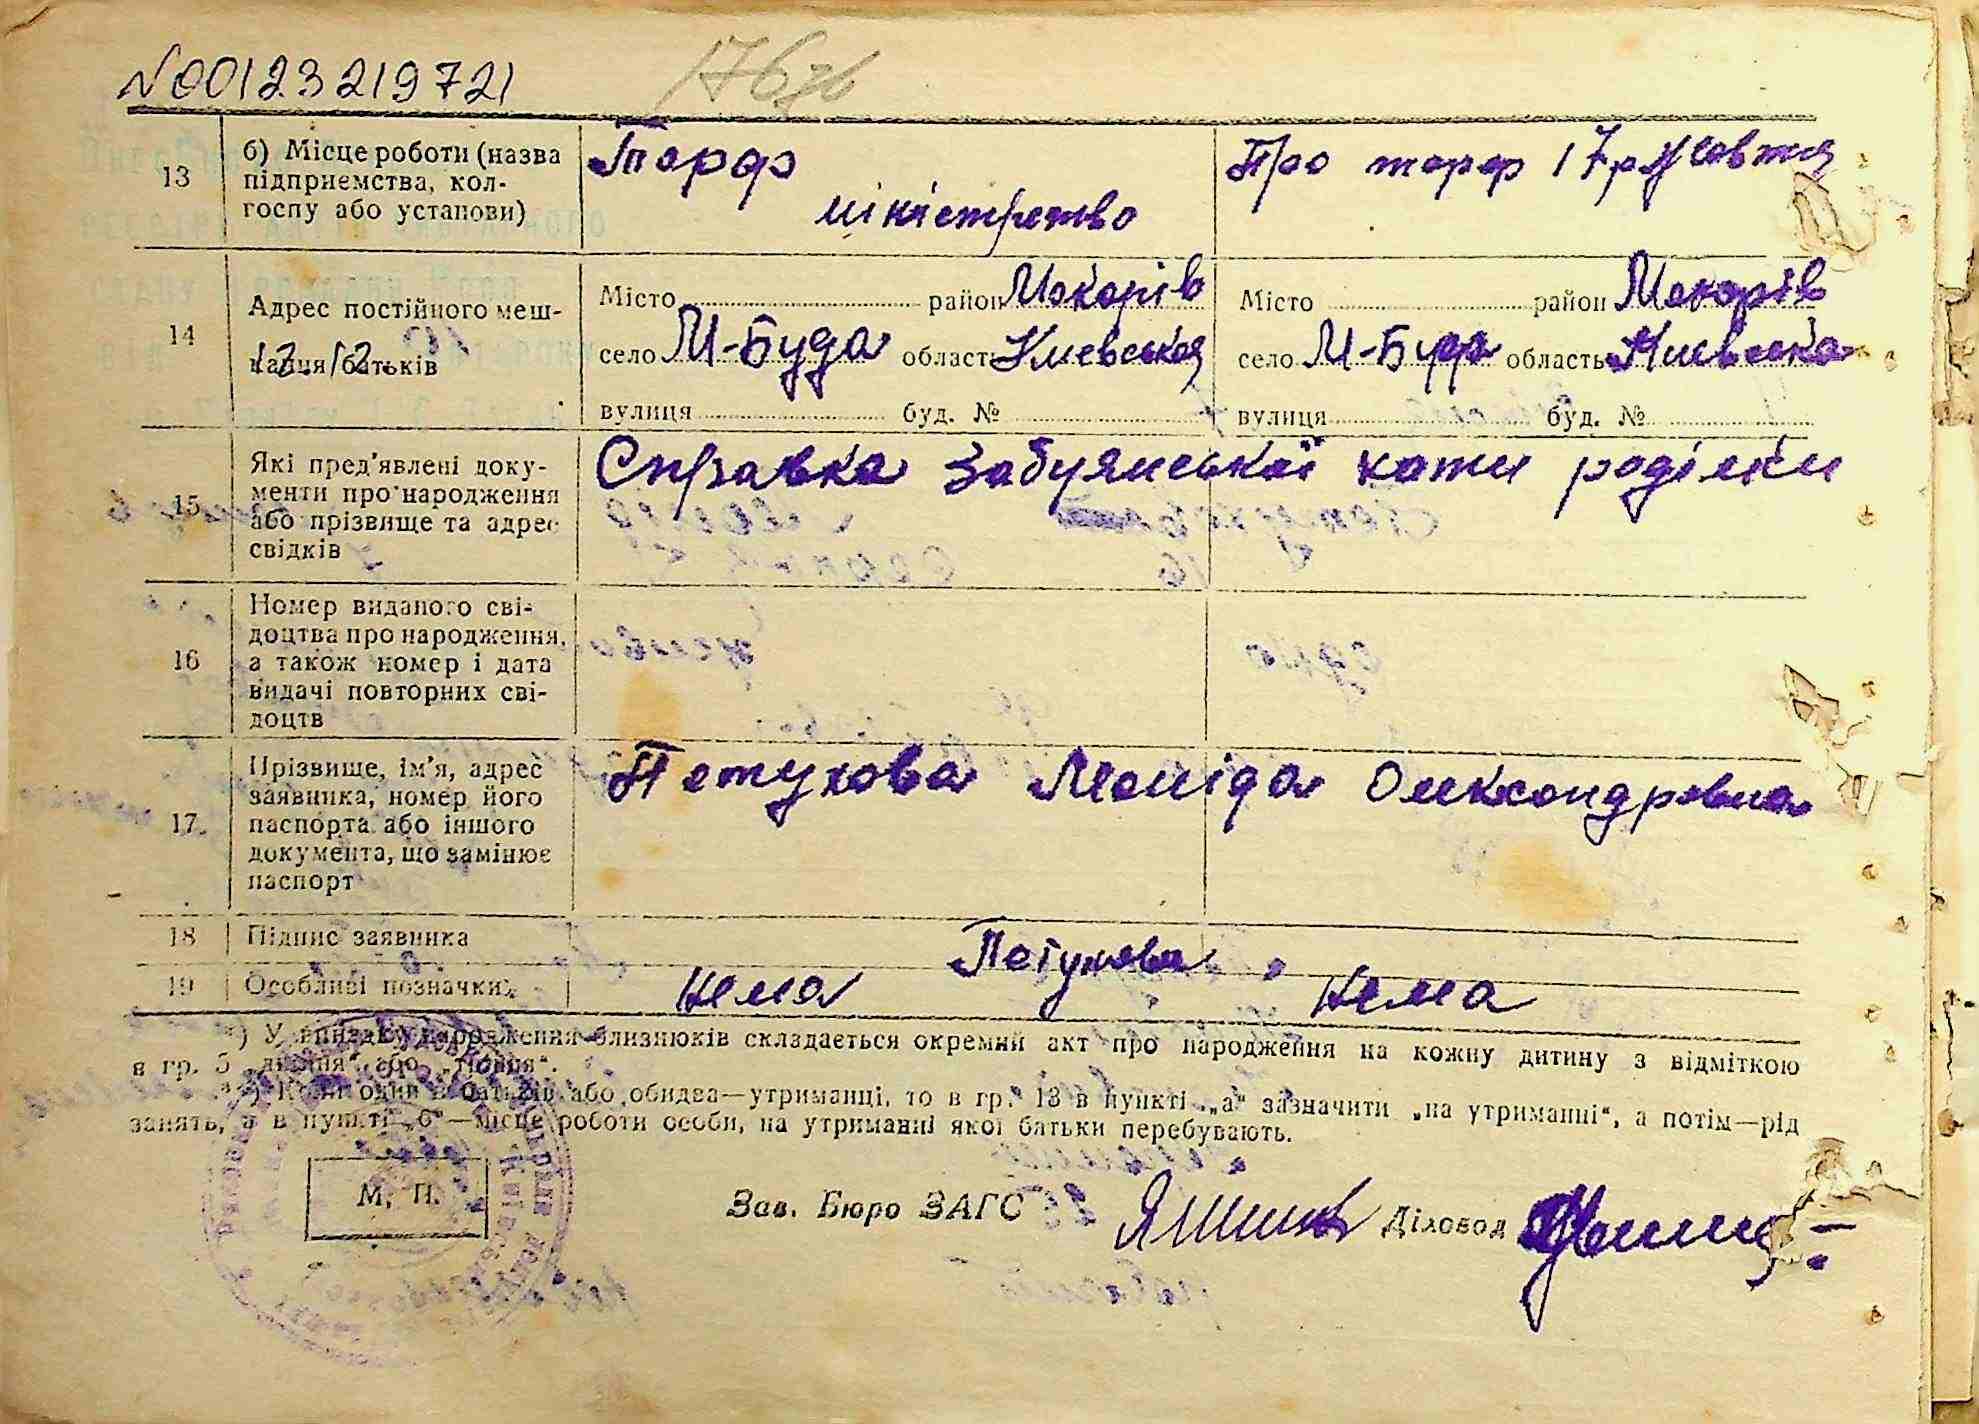 №00123219721
13
б) Місце роботи (назва
підприємства, кол-
госпу або установи)
Торф
міністрство
Про торф 17р Жовтня
14
Адрес постійного меш-
кання батьків
Місто район Макарів
село М-Буда область Киевськоя
вулиця буд. №
Місто район Макарів
село М-Буда область Киевська
вулиця буд. №
15
Які пред'явлені доку-
менти про народження
або прізвище та адрес
свідків
Справка Забуянської хати роділки
16
Номер виданого сві-
доцтва про народження,
а також номер і дата
видачі повторних сві-
доцтв
17.
Прізвище, ім'я, адрес
заявника, номер його
паспорта або іншого
документа, що замінює
паспорт
Петухова Леоніда Олександровна
18
Підпис заявника
Петухова
19
Особливі позначки
Нема
Нема
*) У випадку народження близнюків складається окремий акт про народження на кожну дитину з відміткою
в гр. 5 „двійня“ або „тройня“.
**) Коли один з батьків або обидва—утриманці, то в гр. 13 в пункті „а“ зазначити „на утриманні“, а потім—рід
занять, а в пункті „б“—місце роботи особи, на утриманні якої батьки перебувають.
М. П.
Зав. Бюро ЗАГС
Діловод